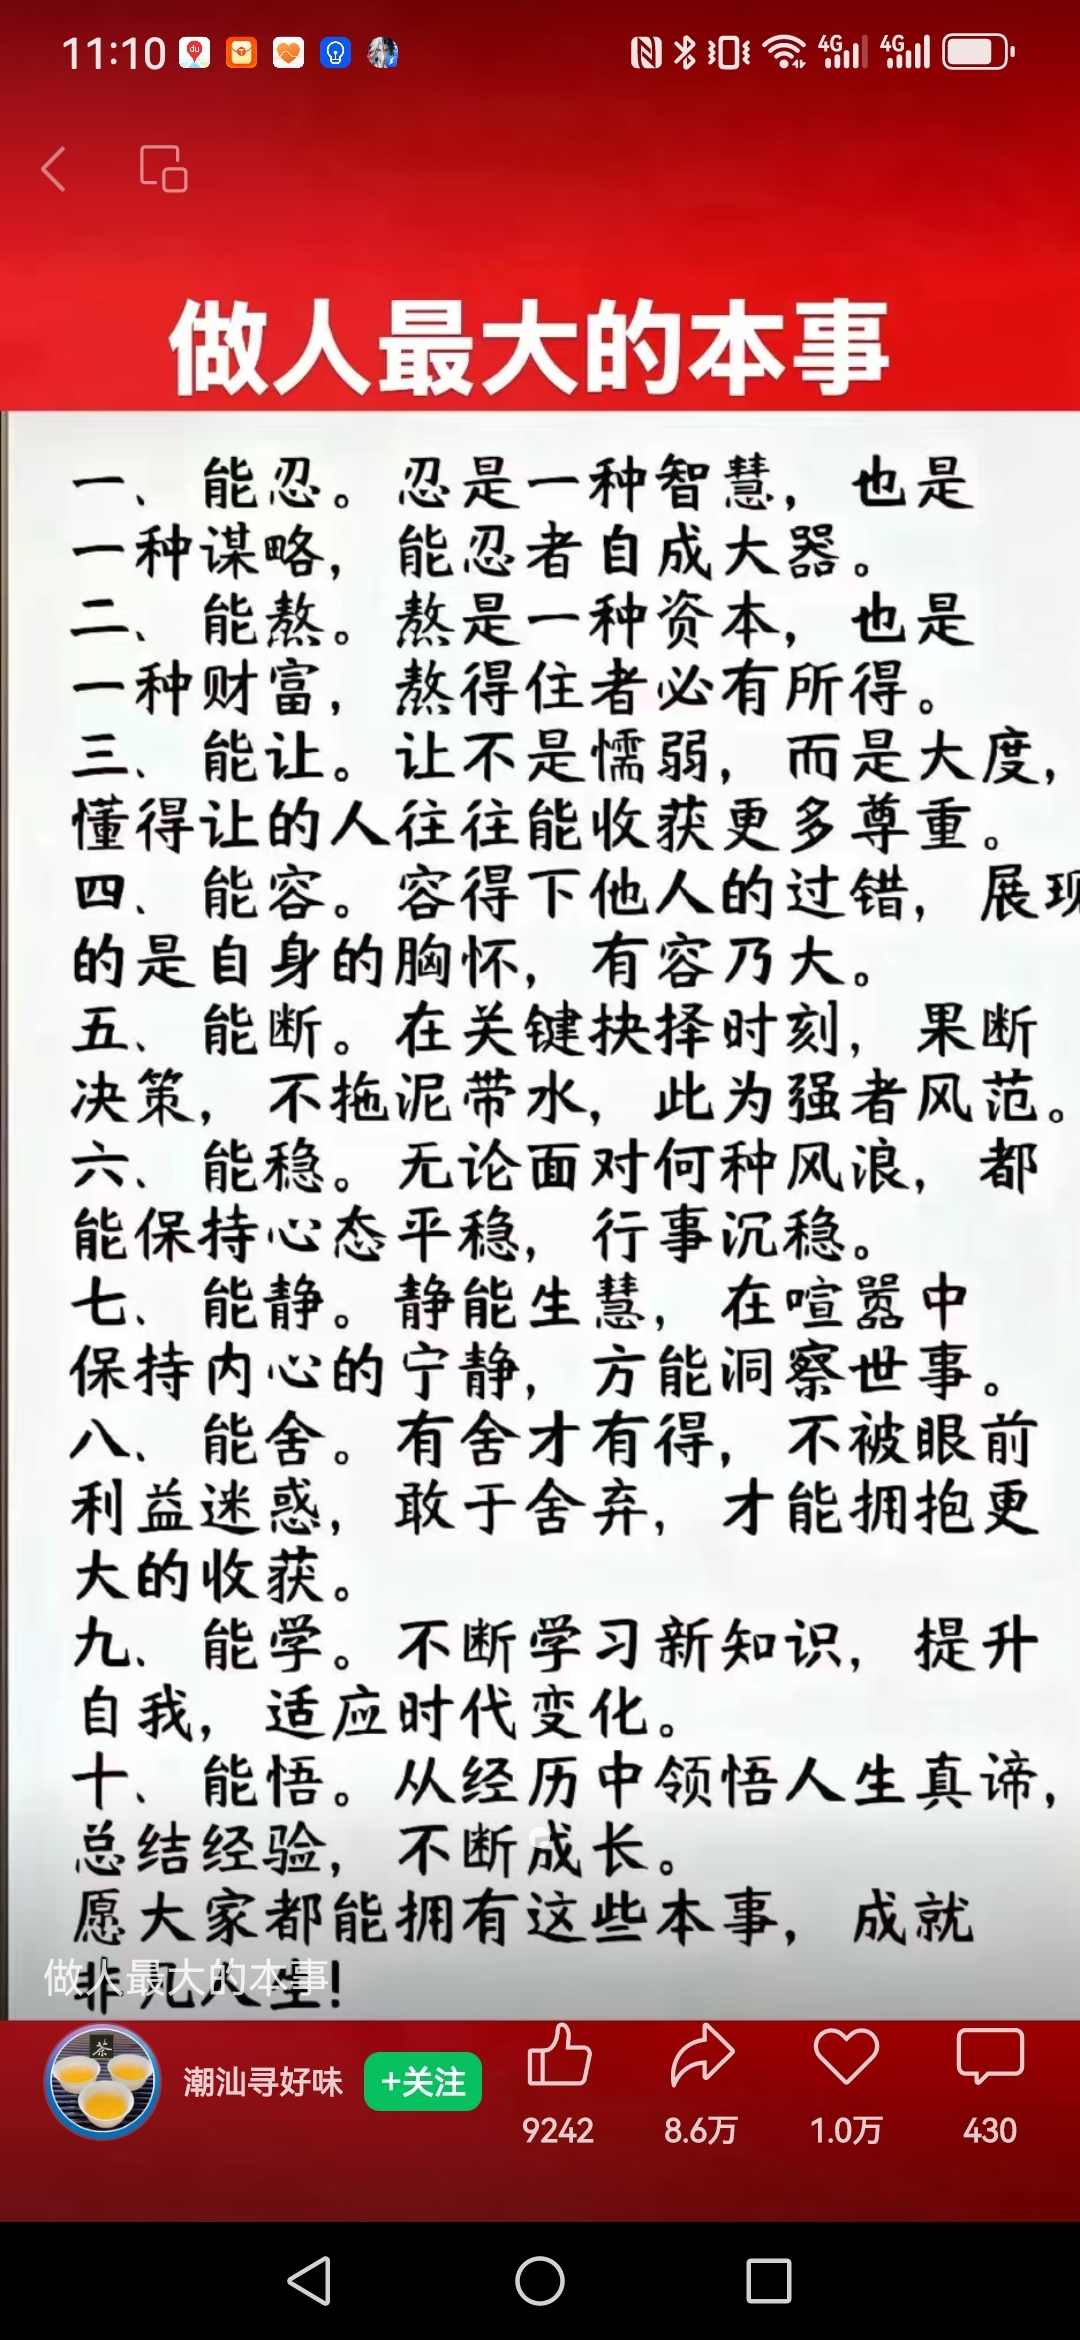 11:10
4G 4G
做人最大的本事
一、能忍。忍是一种智慧，也是
一种谋略，能忍者自成大器。
二、能熬。熬是一种资本，也是
一种财富，熬得住者必有所得。
三、能让。让不是懦弱，而是大度，
懂得让的人往往能收获更多尊重。
四、能容。容得下他人的过错，展现
的是自身的胸怀，有容乃大。
五、能断。在关键抉择时刻，果断
决策，不拖泥带水，此为强者风范。
六、能稳。无论面对何种风浪，都
能保持心态平稳，行事沉稳。
七、能静。静能生慧，在喧嚣中
保持内心的宁静，方能洞察世事。
八、能舍。有舍才有得，不被眼前
利益迷惑，敢于舍弃，才能拥抱更
大的收获。
九、能学。不断学习新知识，提升
自我，适应时代变化。
十、能悟。从经历中领悟人生真谛，
总结经验，不断成长。
愿大家都能拥有这些本事，成就
非凡人生！
做人最大的本事
茶
潮汕寻好味 +关注
9242 8.6万 1.0万 430